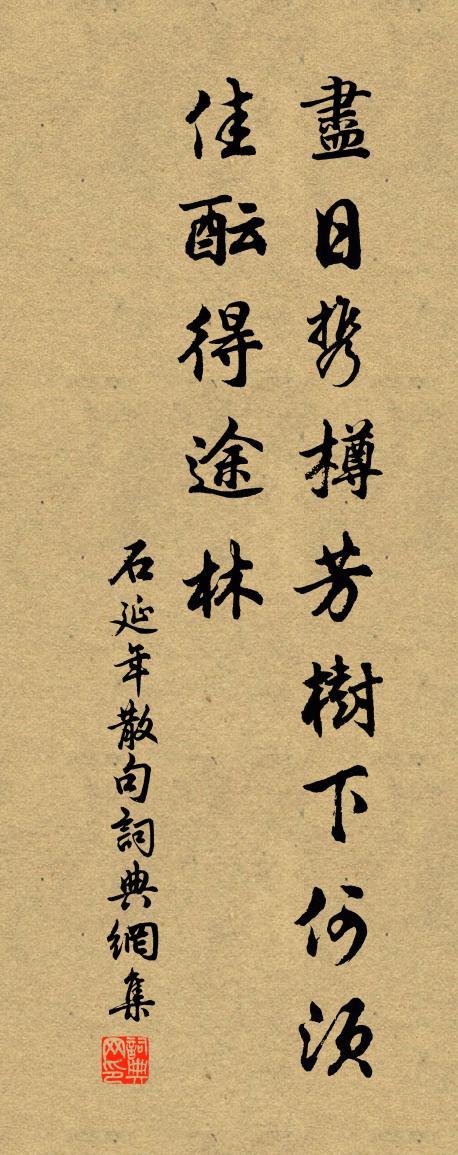 盡日携樽芳樹下何須
佳酝得途林
石延年散句詞典網集
詞典网印